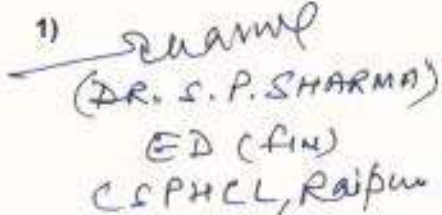 1)
(DR. S. P. SHARMA)
ED (fin)
CSPHCL, Raipur